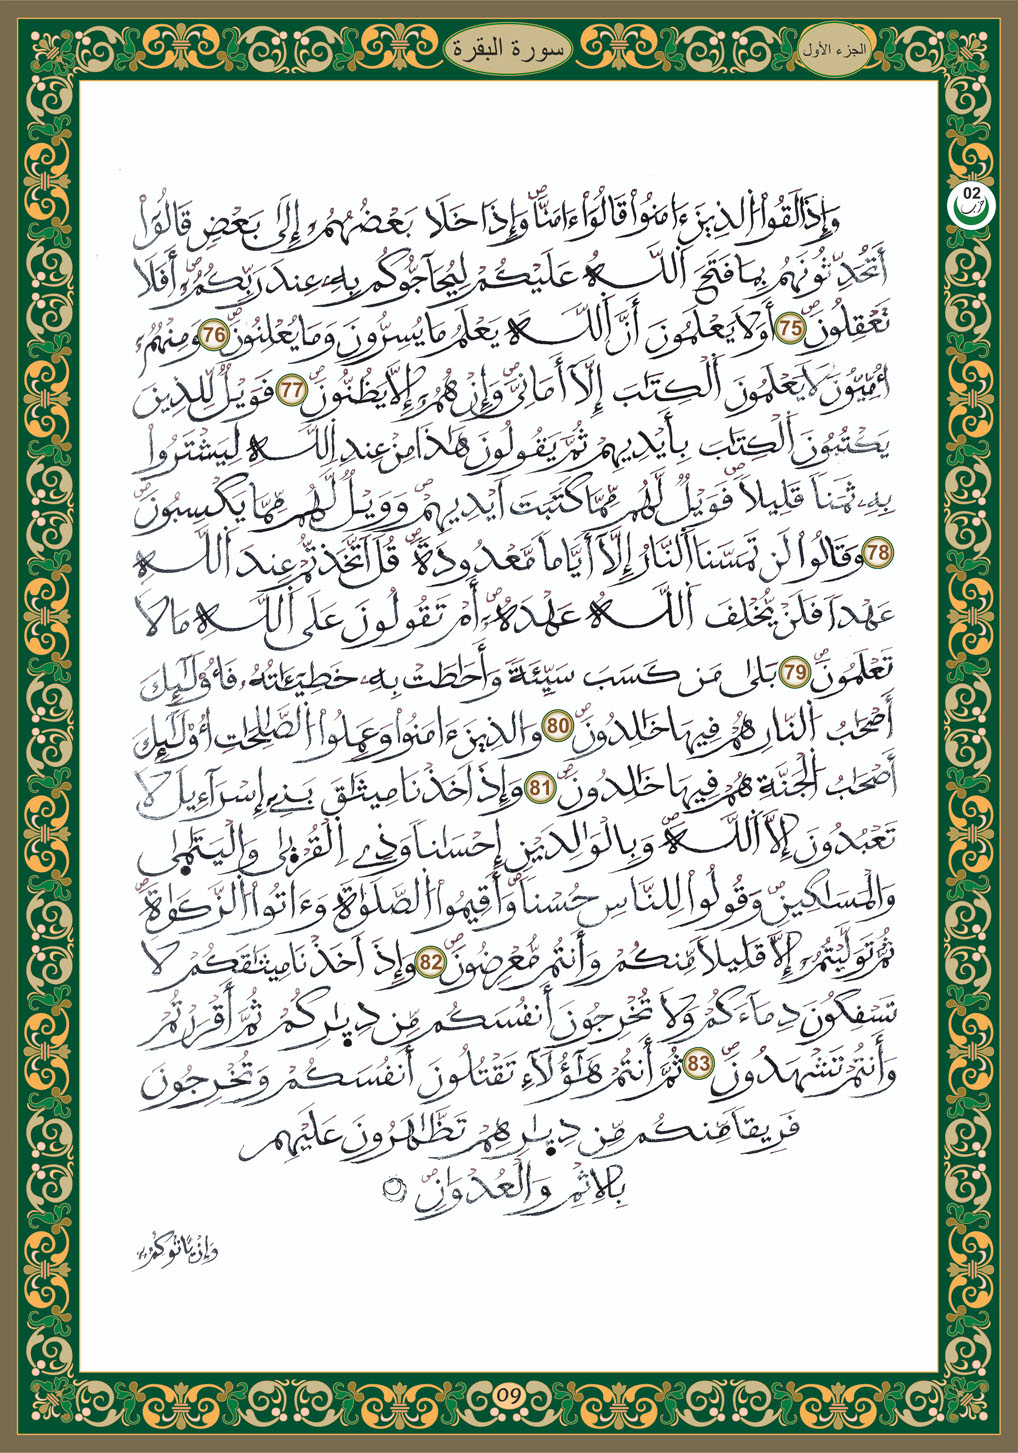 الجزء الأول
سورة البقرة
02
حزب
وَإِذَا لَقُواْ الذِينَ ءَامَنُواْ قَالُوٓاْ ءَامَنَّاۖ وَإِذَا خَلَا بَعْضُهُمُۥٓ إِلَىٰ بَعْضٖ قَالُوٓاْ
أَتُحَدِّثُونَهُم بِمَا فَتَحَ اَللَّهُ عَلَيْكُمْ لِيُحَآجُّوكُم بِهِۦ عِندَ رَبِّكُمُۥٓۖ أَفَلَا
تَعْقِلُونَۖ 75 أَوَلَا يَعْلَمُونَ أَنَّ اَللَّهَ يَعْلَمُ مَا يُسِرُّونَ وَمَا يُعْلِنُونَۖ 76 وَمِنْهُمُۥٓ
أُمِّيُّونَ لَا يَعْلَمُونَ اَلْكِتَٰبَ إِلَّآ أَمَانِيَّ وَإِنْ هُمُۥٓ إِلَّا يَظُنُّونَۖ 77 فَوَيْلٞ لِّلذِينَ
يَكْتُبُونَ اَلْكِتَٰبَ بِأَيْدِيهِمْ ثُمَّ يَقُولُونَ هَٰذَا مِنْ عِندِ اِللَّهِ لِيَشْتَرُواْ
بِهِۦ ثَمَناٗ قَلِيلاٗۖ فَوَيْلٞ لَّهُم مِّمَّا كَتَبَتَ اَيْدِيهِمْۖ وَوَيْلٞ لَّهُم مِّمَّا يَكْسِبُونَۖ
78 وَقَالُواْ لَن تَمَسَّنَا اَلنَّارُ إِلَّآ أَيَّاماٗ مَّعْدُودَةٗۖ قُلَ اَتَّخَذتُّمْ عِندَ اَللَّهِ
عَهْداٗ فَلَنْ يُّخْلِفَ اَللَّهُ عَهْدَهُۥٓۖ أَمْ تَقُولُونَ عَلَى اَللَّهِ مَا لَا
تَعْلَمُونَۖ 79 بَلَىٰ مَن كَسَبَ سَيِّئَةٗ وَأَحَٰطَتْ بِهِۦ خَطِيٓـَٰٔتُهُۥ فَأُوْلَٰٓئِكَ
أَصْحَٰبُ اُلنَّارِ هُمْ فِيهَا خَٰلِدُونَۖ 80 وَالذِينَ ءَامَنُواْ وَعَمِلُواْ اُلصَّٰلِحَٰتِ أُوْلَٰٓئِكَ
أَصْحَٰبُ اُلْجَنَّةِ هُمْ فِيهَا خَٰلِدُونَۖ 81 وَإِذَ اَخَذْنَا مِيثَٰقَ بَنِےٓ إِسْرَآءِيلَ لَا
تَعْبُدُونَ إِلَّا اَللَّهَۖ وَبِالْوَٰلِدَيْنِ إِحْسَاناٗ وَذِے اِلْقُرْبَىٰ وَالْيَتَٰمَىٰ
وَالْمَسَٰكِينِۖ وَقُولُواْ لِلنَّاسِ حُسْناٗۖ وَأَقِيمُواْ اُلصَّلَوٰةَ وَءَاتُواْ اُلزَّكَوٰةَۖ
ثُمَّ تَوَلَّيْتُمُۥٓ إِلَّا قَلِيلاٗ مِّنكُمْ وَأَنتُم مُّعْرِضُونَۖ 82 وَإِذَ اَخَذْنَا مِيثَٰقَكُمْ لَا
تَسْفِكُونَ دِمَآءَكُمْ وَلَا تُخْرِجُونَ أَنفُسَكُم مِّن دِيٰرِكُمْ ثُمَّ أَقْرَرْتُمْ
وَأَنتُمْ تَشْهَدُونَۖ 83 ثُمَّ أَنتُمْ هَٰٓؤُلَآءِ تَقْتُلُونَ أَنفُسَكُمْ وَتُخْرِجُونَ
فَرِيقاٗ مِّنكُم مِّن دِيٰرِهِمْ تَظَّٰهَرُونَ عَلَيْهِم
بِالِاثْمِ وَالْعُدْوَٰنِۖ
وَإِنْ يَّاتُوكُمُۥٓ
09